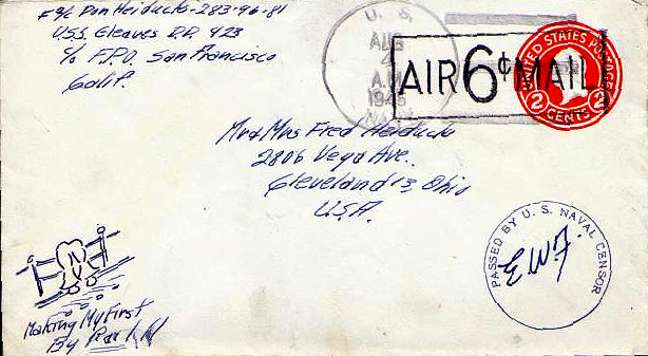 F 2/c Don Heiducto-283-96-81
U.S.S. Gleaves D.D. 423
c/o F.P.O. San Francisco
Calif.
U. S.
AUG
4
A.M.
1945
AIR 6¢ MAIL
UNITED STATES POSTAGE
2 CENTS 2
Mr & Mrs Fred Heiducto
2806 Vega Ave.
Cleveland 13, Ohio
U.S.A.
PASSED BY U. S. NAVAL CENSOR
EWF
Making My First
By